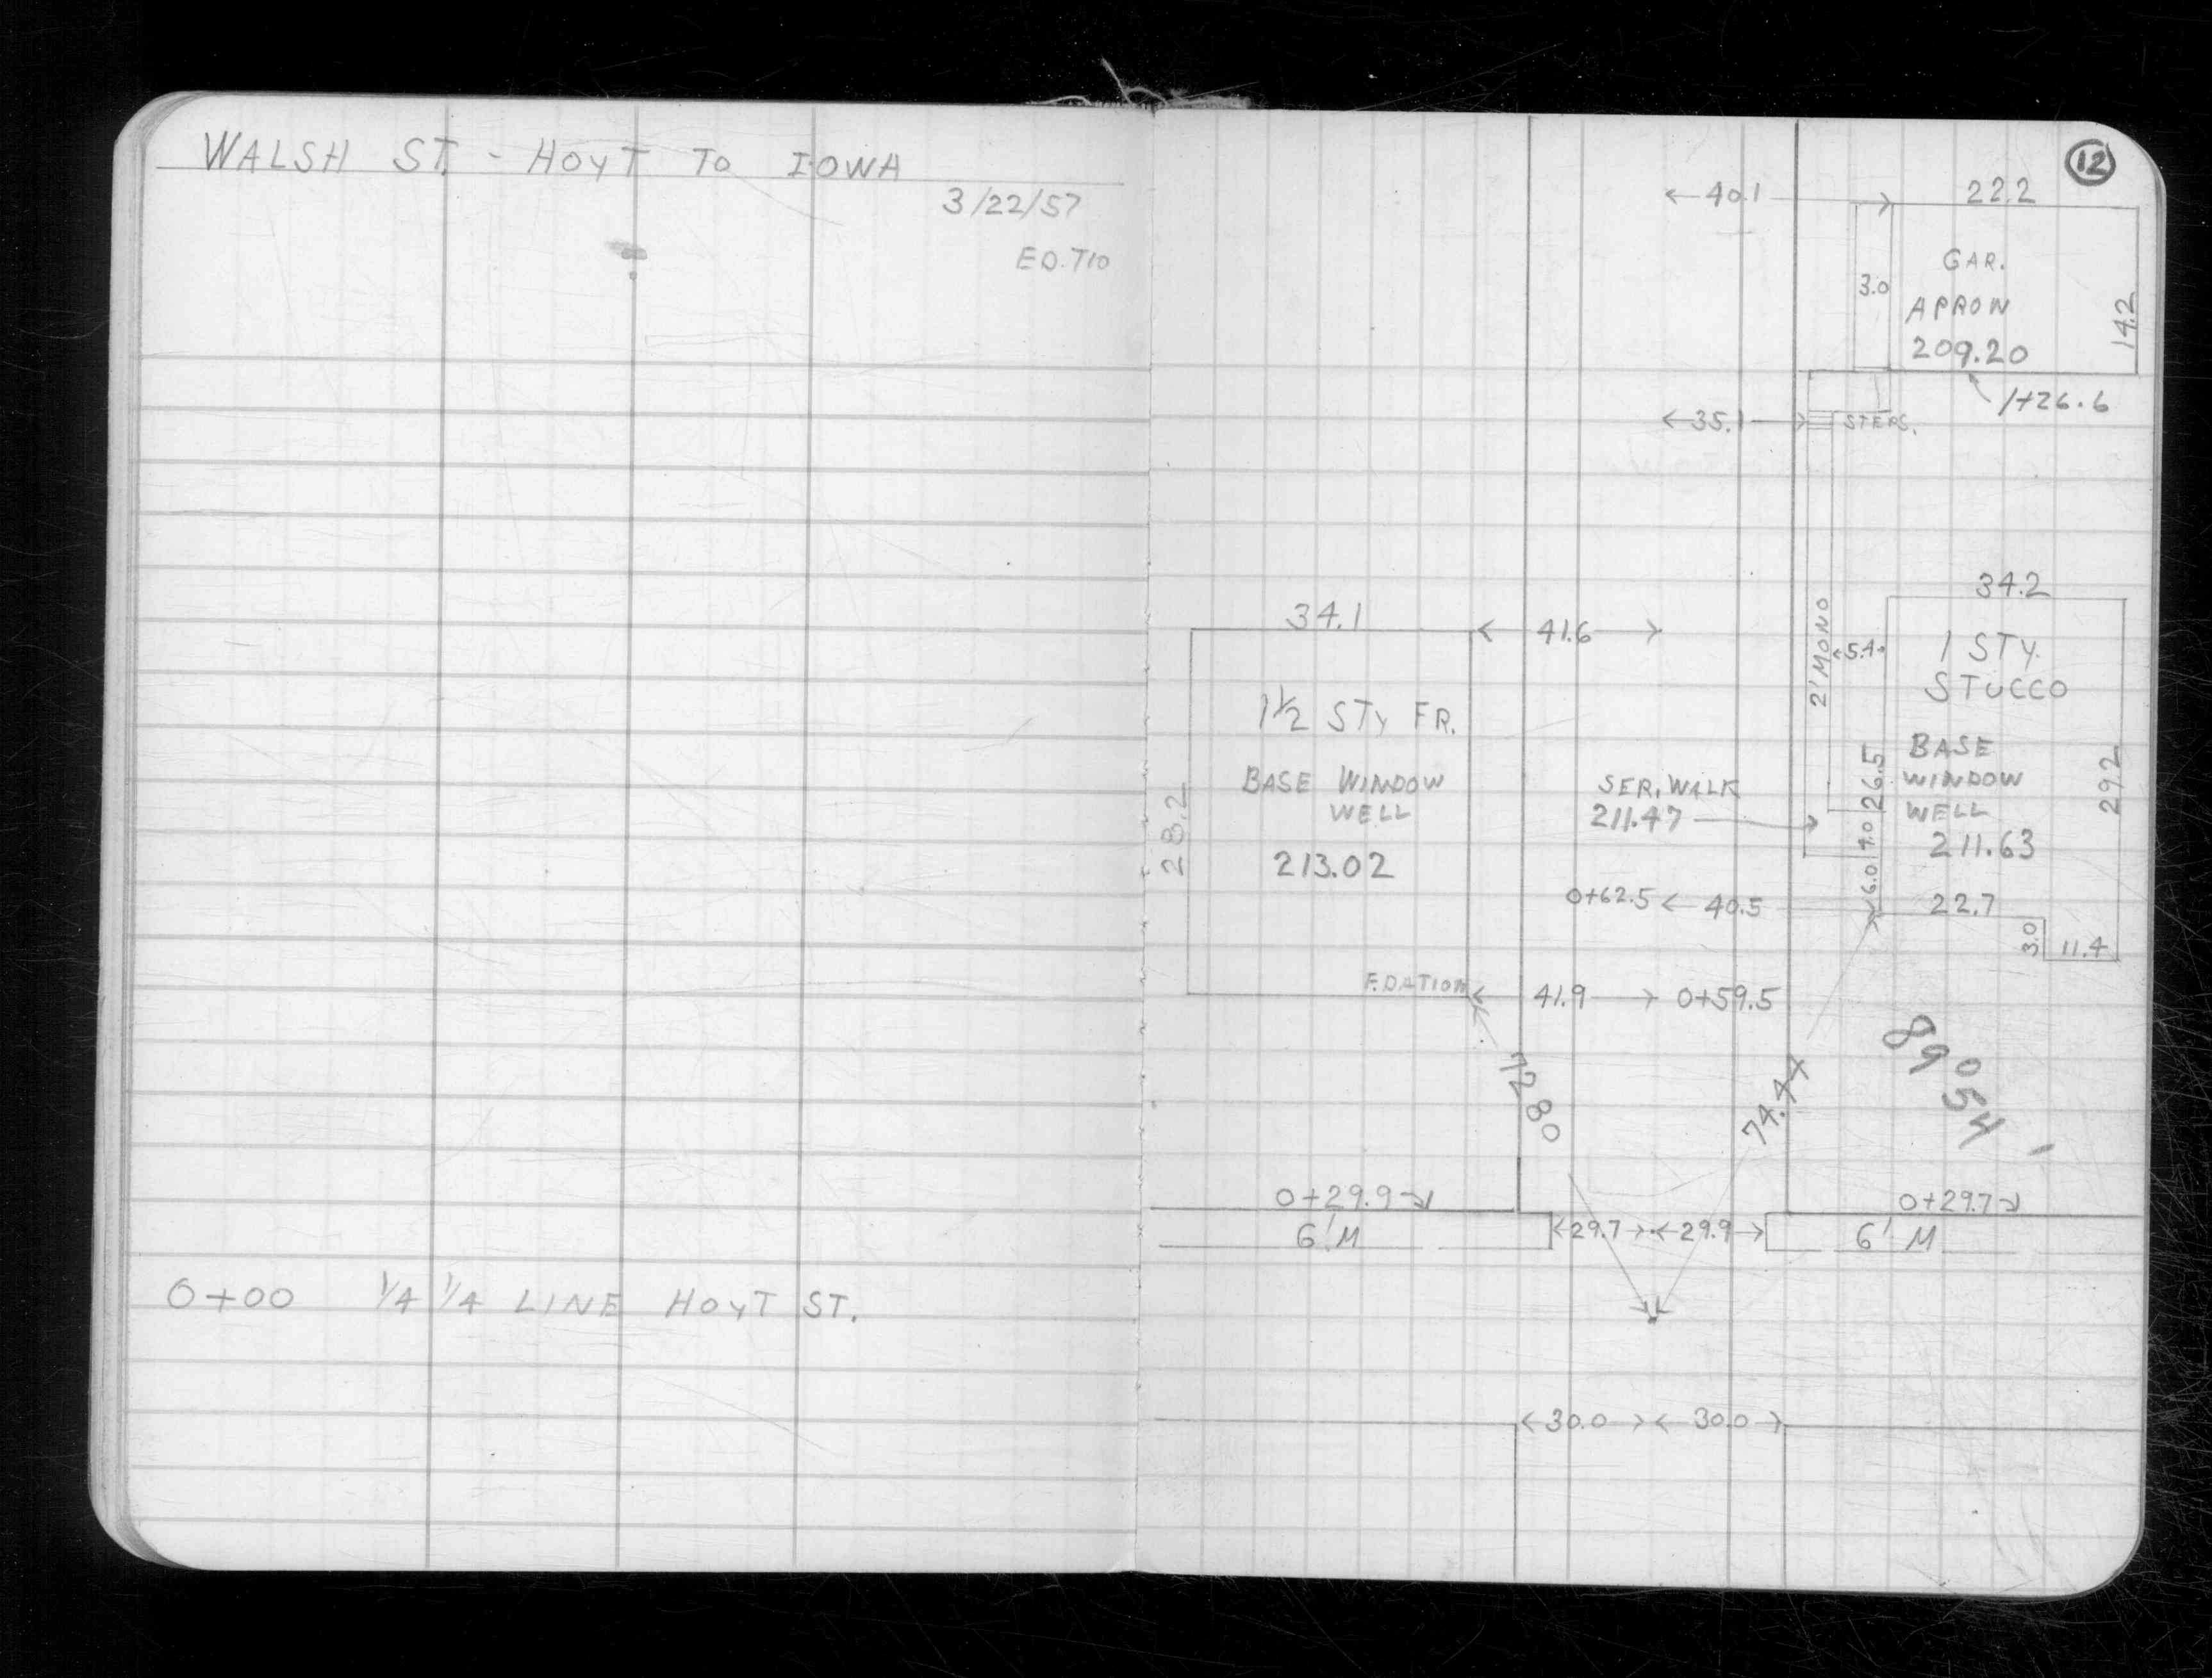 WALSH ST. - HOYT TO IOWA
3/22/57
0+00 1/4 1/4 LINE HOYT ST.
12
40.1
22.2
3.0
GAR.
APRON
209.20
14.2
1+26.6
35.1
STEPS.
34.1
41.6
1 1/2 STY FR.
BASE WINDOW
WELL
213.02
28.2
F.DATION
41.9
0+59.5
34.2
2' MONO
5.4
1 STY.
STUCCO
BASE
WINDOW
WELL
211.63
29.2
26.5
4.0
6.0
SER. WALK
211.47
0+62.5
40.5
22.7
3.0
11.4
72.80
74.44
89° 54'
0+29.9
6' M
29.7
29.9
0+29.7
6' M
30.0
30.0